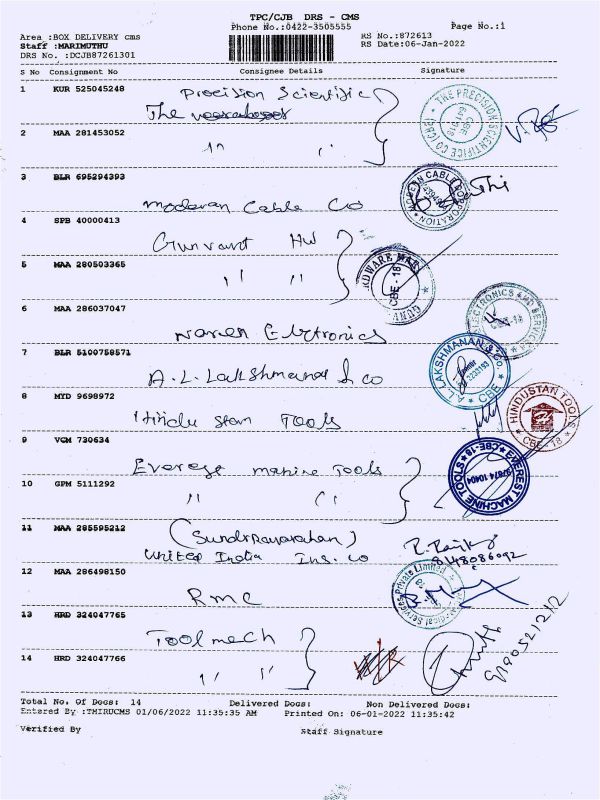 TPC/CJB DRS - CMS
Phone No.:0422-3505555
Page No.:1
Area :BOX DELIVERY cms
RS No.:872613
Staff :MARIMUTHU
RS Date:06-Jan-2022
DRS No. :DCJB87261301
S No Consignment No Consignee Details Signature
1 KUR 525045248 Precision Scientific
The
THE PRECISION SCIENTIFIC CO (CBE)
2 MAA 281453052 " "
3 BLR 695294393
Moderan Cable Co
CABLE CORPORATION
4 SPB 40000413
Gunvant HW
HARDWARE MAR
CBE - 18
5 MAA 280503365 " "
6 MAA 286037047
Naren Elctronics
ELECTRONICS AND SERVICES
7 BLR 5100758571
A.L. Lakshmanan & co
A.L. LAKSHMANAN & CO.
CBE
8 MYD 9698972
Hindu stan Tools
HINDUSTAN TOOLS
CBE - 18
9 VGM 730634
Everest machine Tools
EVEREST MACHINE TOOLS
CBE-18
97874 10404
10 GPM 5111292 " "
11 MAA 285595212
United India Ins. Co
8148086092
12 MAA 286498150
RMC
Services Private Limited
13 HRD 324047765
Toolmech
14 HRD 324047766 " "
Total No. Of Docs: 14 Delivered Docs: Non Delivered Docs:
Entered By :THIRUCMS 01/06/2022 11:35:35 AM Printed On: 06-01-2022 11:35:42
Verified By Staff Signature